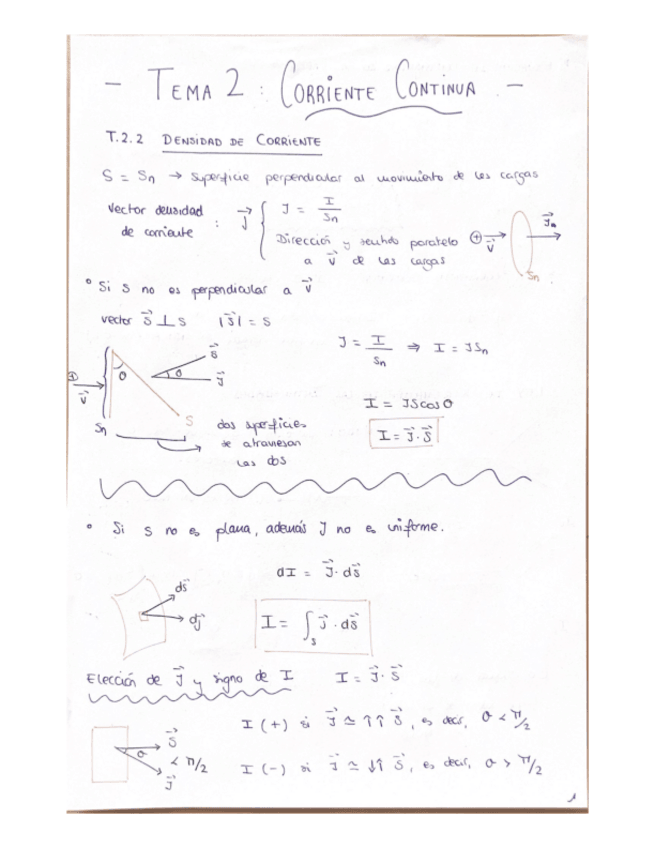 - TEMA 2 : CORRIENTE CONTINUA -
T.2.2 DENSIDAD DE CORRIENTE
S = Sn → Superficie perpendicular al movimiento de las cargas
Vector densidad de corriente : J⃗ { J = I/Sn
Dirección y sentido paralelo a v⃗ de las cargas
⊕ v⃗ J⃗n Sn
° Si S no es perpendicular a v⃗
vector S⃗ ⊥ S |S⃗| = S
J = I/Sn ⇒ I = JSn
⊕ v⃗ Sn θ S
S⃗ θ J⃗
I = JS cos θ
I = J⃗·S⃗
dos superficies
se atraviesan
las dos
° Si S no es plana, además J no es uniforme.
dS⃗ dj⃗
dI = J⃗·dS⃗
I = ∫s J⃗·dS⃗
Elección de J⃗ y signo de I I = J⃗·S⃗
S⃗ θ < π/2 J⃗
I (+) si J⃗ ≃ ↑↑ S⃗, es decir, θ < π/2
I (-) si J⃗ ≃ ↓↑ S⃗, es decir, θ > π/2
1